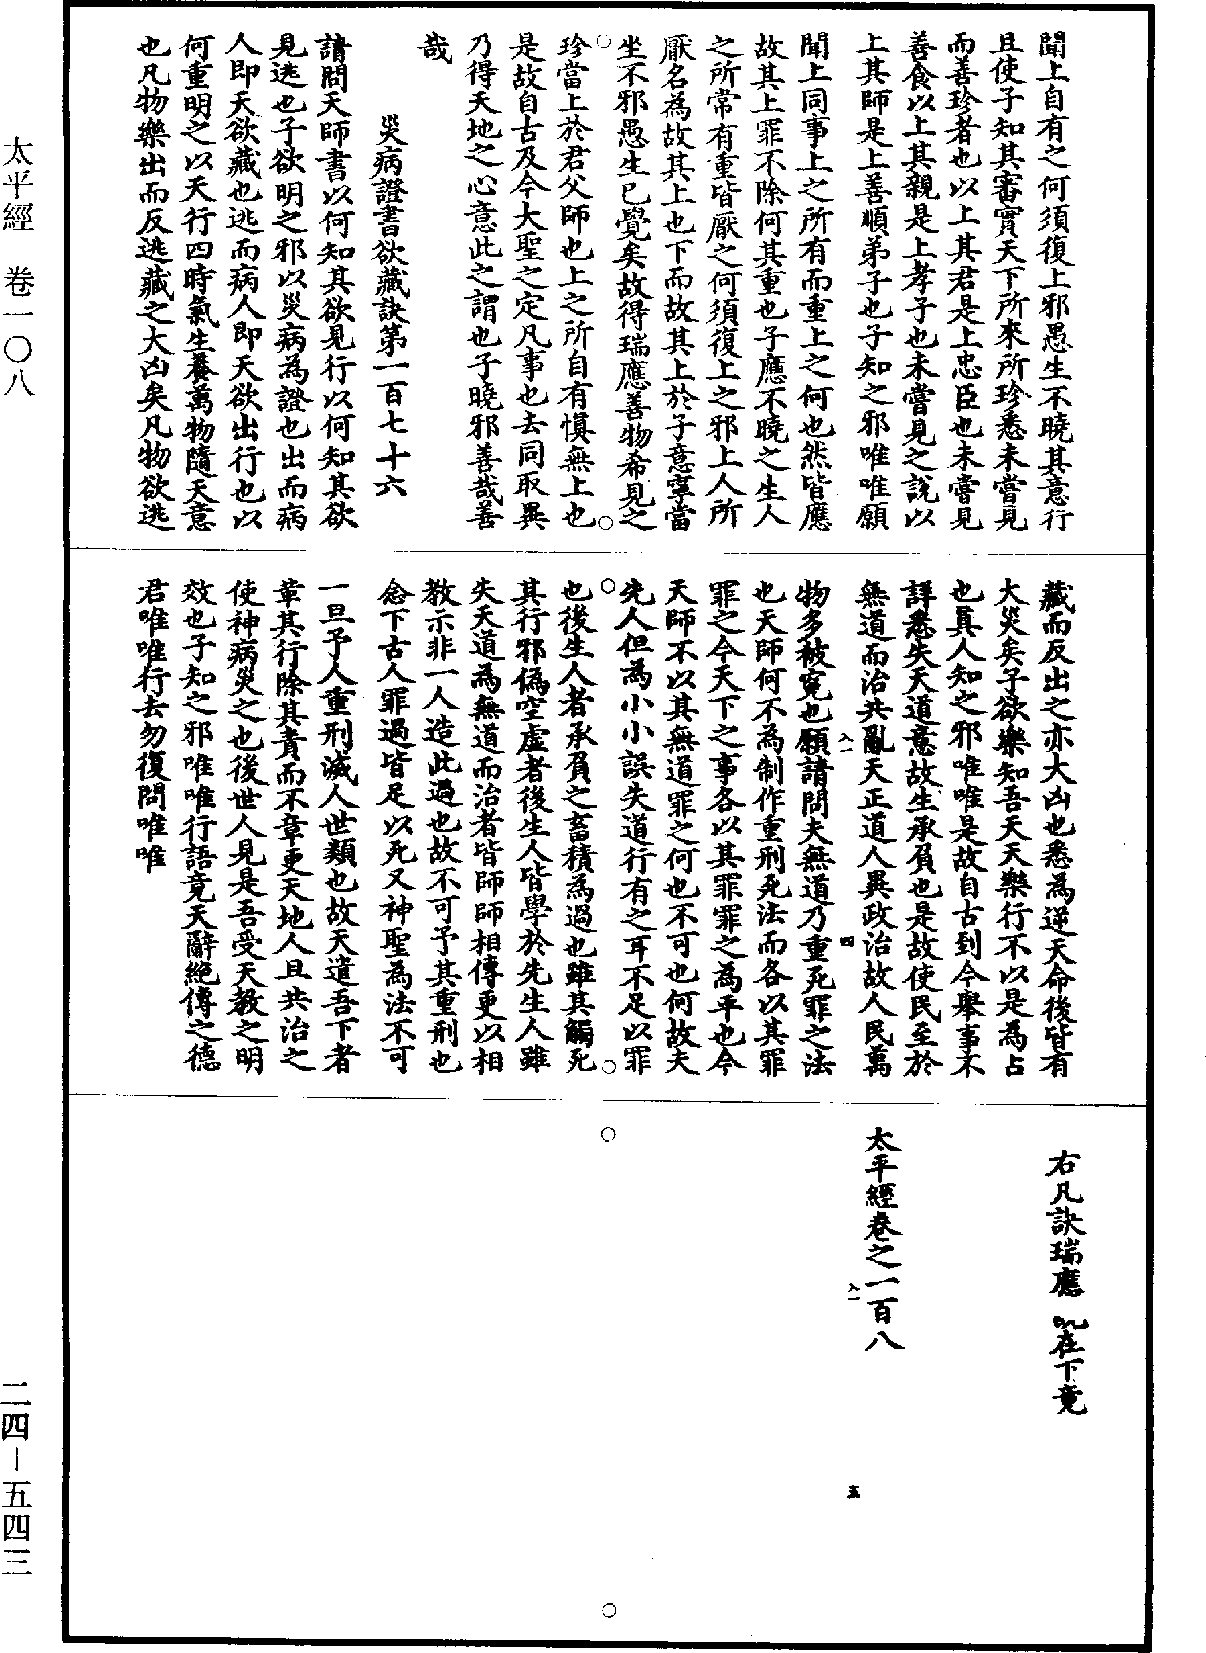 聞上自有之何須復上邪愚生不曉其意行
且使子知其審實天下所來所珍悉未嘗見
而善珍者也以上其君是上忠臣也未嘗見
善食以上其親是上孝子也未嘗見之說以
上其師是上善順弟子也子知之邪唯唯願
聞上同事上之所有而重上之何也然皆應
故其上罪不除何其重也子應不曉之生人
之所常有重皆厭之何須復上之邪上人所
厭名為故其上也下而故其上於子意寧當
坐不邪愚生已覺矣故得瑞應善物希見之
珍當上於君父師也上之所自有慎無上也
是故自古及今大聖之定凡事也去同取異
乃得天地之心意此之謂也子曉邪善哉善
哉
災病證書欲藏訣第一百七十六
請問天師書以何知其欲見行以何知其欲
見逃也子欲明之邪以災病為證也出而病
人即天欲藏也逃而病人即天欲出行也以
何重明之以天行四時氣生養萬物隨天意
也凡物樂出而反逃藏之大凶矣凡物欲逃
藏而反出之亦大凶也悉為逆天命後皆有
大災矣子欲樂知吾天天樂行不以是為占
也真人知之邪唯唯是故自古到今舉事不
詳悉失天道意故生承負也是故使民至於
無道而治共亂天正道人異政治故人民萬
物多被冤也願請問夫無道乃重死罪之法
也天師何不為制作重刑死法而各以其罪
罪之今天下之事各以其罪罪之為平也今
天師不以其無道罪之何也不可也何故夫
先人但為小小誤失道行有之耳不足以罪
也後生人者承負之畜積為過也雖其觸死
其行邪偽空虛者後生人皆學於先生人雖
失天道為無道而治者皆師師相傳更以相
教示非一人造此過也故不可予其重刑也
念下古人罪過皆足以死又神聖為法不可
一旦予人重刑滅人世類也故天遣吾下者
革其行除其責而不章更天地人且共治之
使神病災之也後世人見是吾受天教之明
效也子知之邪唯唯行語竟天辭絕傳之德
君唯唯行去勿復問唯唯
右凡訣瑞應 在下竟
太平經卷之一百八
八一
四
八一
五
太平經 卷一〇八
二四－五四三